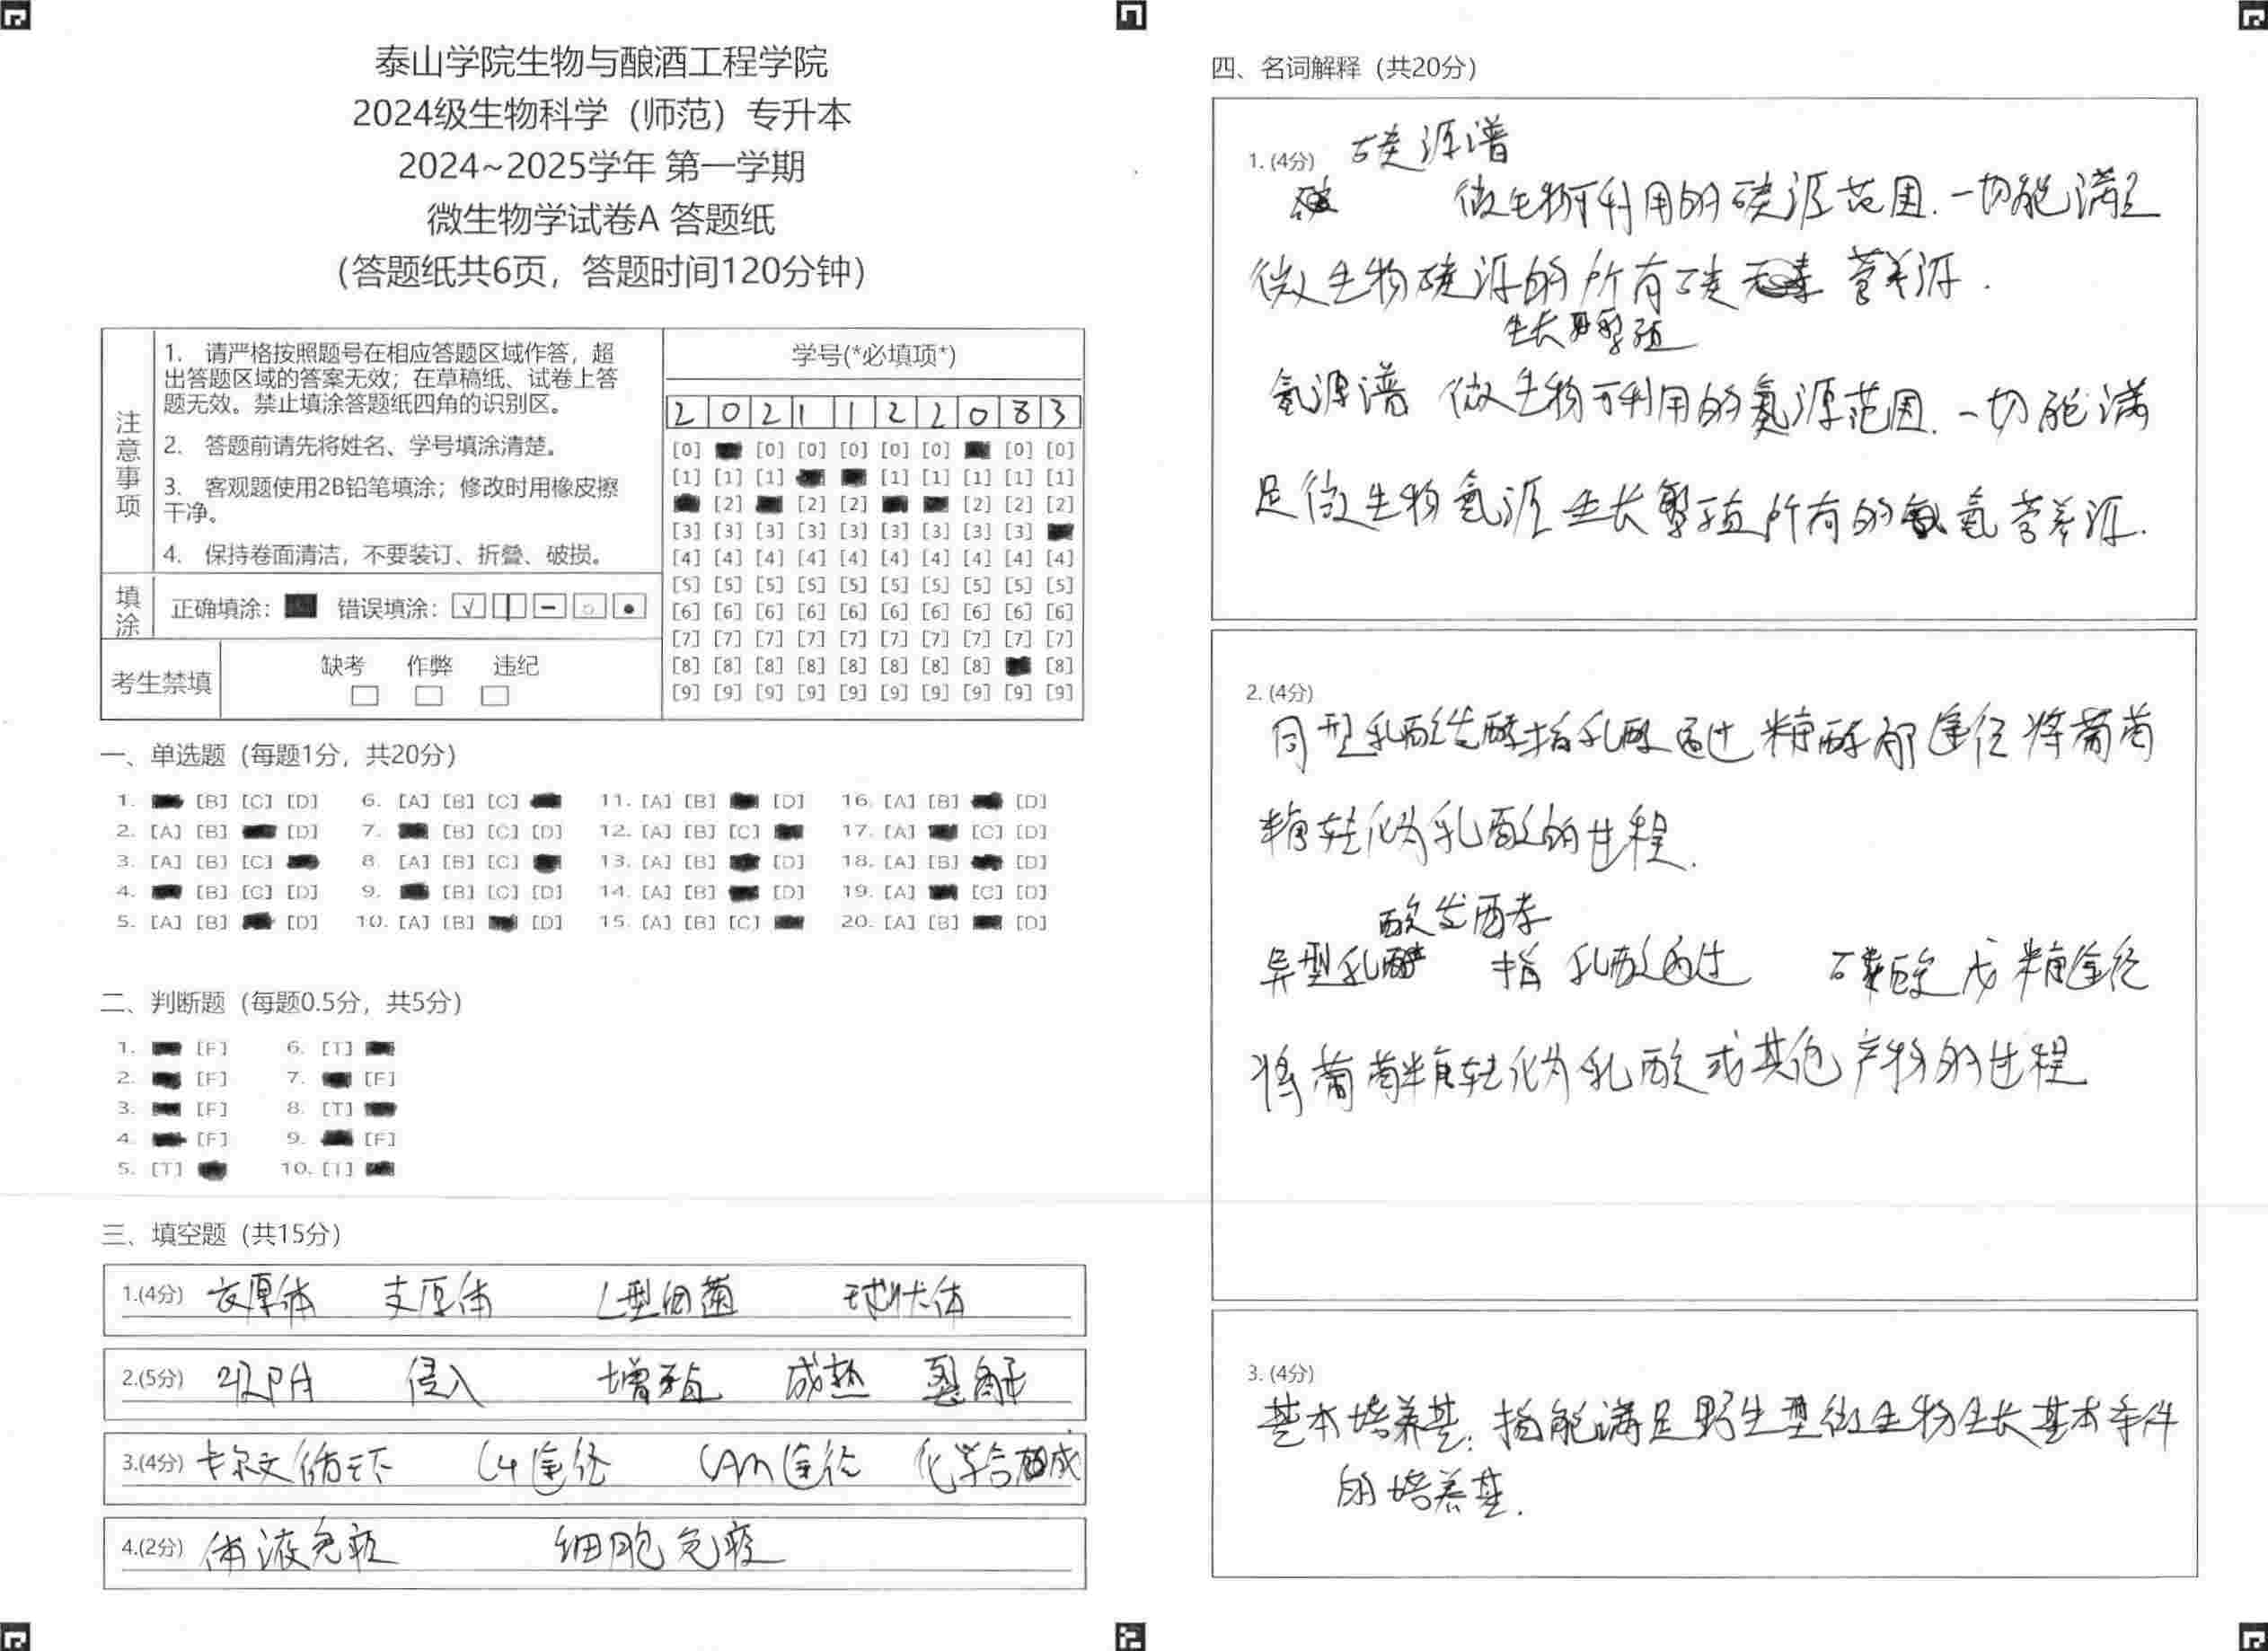 泰山学院生物与酿酒工程学院
2024级生物科学（师范）专升本
2024~2025学年 第一学期
微生物学试卷A 答题纸
（答题纸共6页，答题时间120分钟）
注意事项
1. 请严格按照题号在相应答题区域作答，超
出答题区域的答案无效；在草稿纸、试卷上答
题无效。禁止填涂答题纸四角的识别区。
2. 答题前请先将姓名、学号填涂清楚。
3. 客观题使用2B铅笔填涂；修改时用橡皮擦
干净。
4. 保持卷面清洁，不要装订、折叠、破损。
填涂 正确填涂： 错误填涂：
考生禁填 缺考 作弊 违纪
学号(*必填项*)
2 0 2 1 1 2 2 0 8 3
[0] [0] [0] [0] [0] [0] [0] [0]
[1] [1] [1] [1] [1] [1] [1] [1]
[2] [2] [2] [2] [2] [2]
[3] [3] [3] [3] [3] [3] [3] [3] [3]
[4] [4] [4] [4] [4] [4] [4] [4] [4] [4]
[5] [5] [5] [5] [5] [5] [5] [5] [5] [5]
[6] [6] [6] [6] [6] [6] [6] [6] [6] [6]
[7] [7] [7] [7] [7] [7] [7] [7] [7] [7]
[8] [8] [8] [8] [8] [8] [8] [8] [8]
[9] [9] [9] [9] [9] [9] [9] [9] [9] [9]
一、单选题（每题1分，共20分）
1. [B] [C] [D] 6. [A] [B] [C] 11. [A] [B] [D] 16. [A] [B] [D]
2. [A] [B] [D] 7. [B] [C] [D] 12. [A] [B] [C] 17. [A] [C] [D]
3. [A] [B] [C] 8. [A] [B] [C] 13. [A] [B] [D] 18. [A] [B] [D]
4. [B] [C] [D] 9. [B] [C] [D] 14. [A] [B] [D] 19. [A] [C] [D]
5. [A] [B] [D] 10. [A] [B] [D] 15. [A] [B] [C] 20. [A] [B] [D]
二、判断题（每题0.5分，共5分）
1. [F] 6. [T]
2. [F] 7. [F]
3. [F] 8. [T]
4. [F] 9. [F]
5. [T] 10. [T]
三、填空题（共15分）
1.(4分) 衣原体 支原体 L型细菌 球状体
2.(5分) 吸附 侵入 增殖 成熟 裂解
3.(4分) 卡尔文循环 C4途径 CAM途径 化学合成
4.(2分) 体液免疫 细胞免疫
四、名词解释（共20分）
1. (4分) 碳源谱
微生物可利用的碳源范围.一切能满足
微生物碳源的所有碳 营养源.
生长繁殖
氮源谱 微生物可利用的氮源范围.一切能满
足微生物氮源生长繁殖所有的氮营养源.
2. (4分)
同型乳酸发酵指乳酸通过糖酵解途径将葡萄
糖转化为乳酸的过程.
酸发酵
异型乳 指乳酸通过 磷酸戊糖途径
将葡萄糖转化为乳酸或其他产物的过程
3. (4分)
基本培养基:指能满足野生型微生物生长基本条件
的培养基.